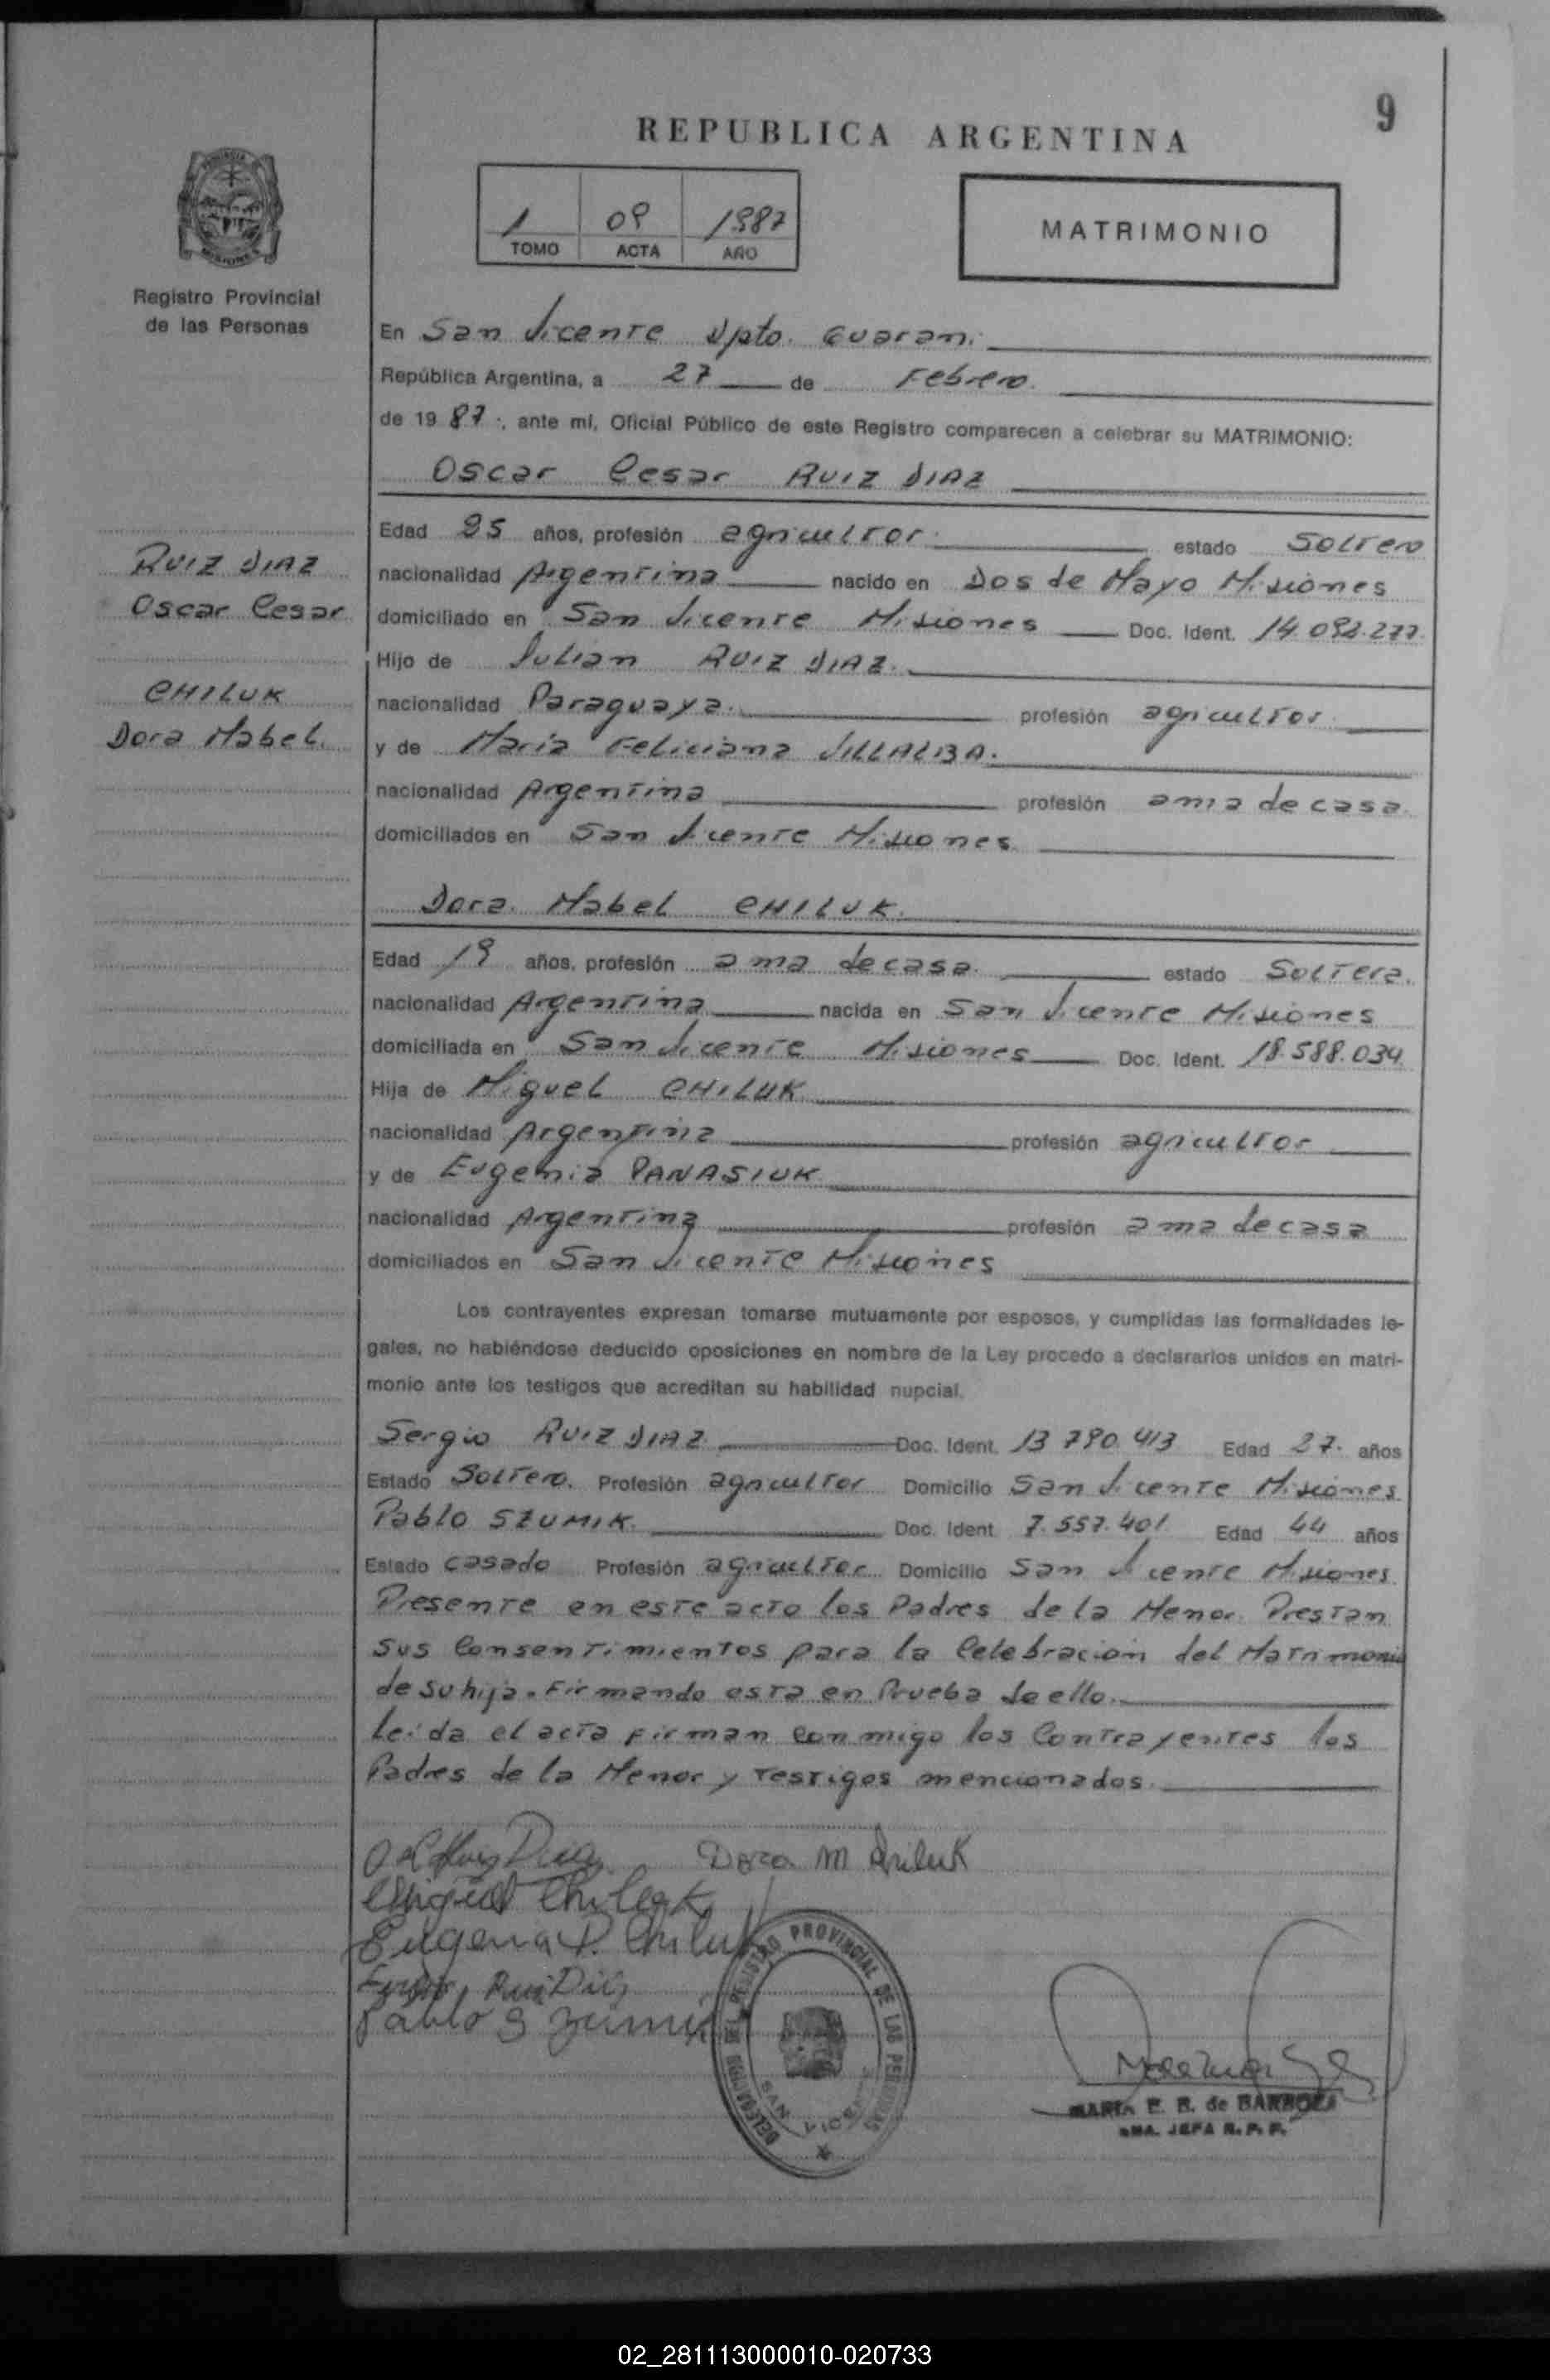 9
REPUBLICA ARGENTINA
1 09 1987
TOMO ACTA AÑO
MATRIMONIO
Registro Provincial
de las Personas
En San Vicente Dpto. Guarani
República Argentina, a 27 de Febrero
de 19 87, ante mí, Oficial Público de este Registro comparecen a celebrar su MATRIMONIO:
Oscar Cesar RUIZ DIAZ
RUIZ DIAZ
Oscar Cesar
CHILUK
Dora Mabel.
Edad 25 años, profesión agricultor estado Soltero
nacionalidad Argentina nacido en Dos de Mayo Misiones
domiciliado en San Vicente Misiones Doc. Ident. 14.092.277
Hijo de Julian RUIZ DIAZ.
nacionalidad Paraguaya. profesión agricultor
y de Maria Feliciana VILLALBA.
nacionalidad Argentina profesión ama de casa.
domiciliados en San Vicente Misiones
Dora Mabel CHILUK.
Edad 19 años, profesión ama de casa. estado Soltera.
nacionalidad Argentina nacida en San Vicente Misiones
domiciliada en San Vicente Misiones Doc. Ident. 18.588.034
Hija de Miguel CHILUK
nacionalidad Argentina profesión agricultor
y de Eugenia PANASIUK
nacionalidad Argentina profesión ama de casa
domiciliados en San Vicente Misiones
Los contrayentes expresan tomarse mutuamente por esposos, y cumplidas las formalidades le-
gales, no habiéndose deducido oposiciones en nombre de la Ley procedo a declararlos unidos en matri-
monio ante los testigos que acreditan su habilidad nupcial.
Sergio RUIZ DIAZ Doc. Ident. 13 790.413 Edad 27. años
Estado Soltero. Profesión agricultor Domicilio San Vicente Misiones
Pablo SZUMIK. Doc. Ident 7.557.401 Edad 44 años
Estado casado Profesión agricultor Domicilio San Vicente Misiones
Presente en este acto los Padres de la Menor Prestan
sus Consentimientos para la Celebracion del Matrimonio
de su hija. Firmando esta en Prueba de ello.
Leida el acta firman conmigo los Contrayentes los
Padres de la Menor y Testigos mencionados.
Ruiz Diaz Dora M Chiluk
Miguel Chiluk
Eugenia P. Chiluk
Ruiz Diaz
Pablo Szumik
DELEGACION DEL REGISTRO PROVINCIAL DE LAS PERSONAS
SAN VICENTE
MARIA E. B. de BARBOZA
JEFA R. P. P.
02_281113000010-020733